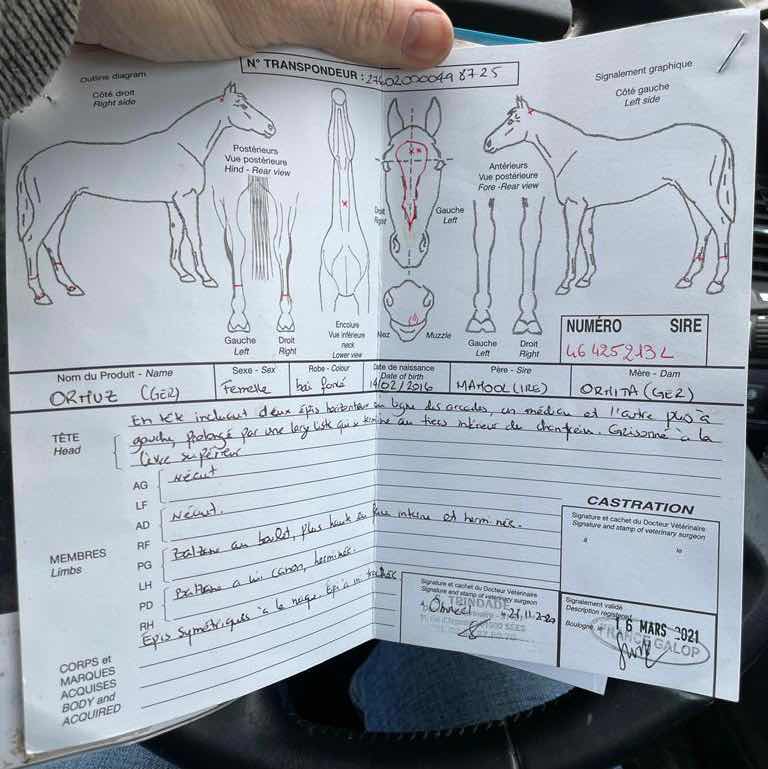 N° TRANSPONDEUR : 276020000498725
Outline diagram
Côté droit
Right side
Signalement graphique
Côté gauche
Left side
Postérieurs
Vue postérieure
Hind - Rear view
Antérieurs
Vue postérieure
Fore - Rear view
Droit
Right
Gauche
Left
Gauche
Left
Droit
Right
Encolure
Vue inférieure
neck
Lower view
Nez
Muzzle
Gauche
Left
Droit
Right
NUMÉRO SIRE
46425213L
Nom du Produit - Name
ORMUZ (GER)
Sexe - Sex
Femelle
Robe - Colour
bai foncé
Date de naissance
Date of birth
14/02/2016
Père - Sire
MAMOOL (IRE)
Mère - Dam
ORMITA (GER)
TÊTE
Head
En tête incluant deux épis horizontaux en ligne des arcades, un médian et l'autre plus à
gauche, prolongé par une large liste qui se termine au tiers inférieur du chanfrein. Grisonné à la
lèvre supérieure
MEMBRES
Limbs
AG
LF
Néant
AD
RF
Néant.
PG
LH
Balzane au boulet, plus haute en face interne et herminée.
PD
RH
Balzane à mi canon, herminée.
CORPS et
MARQUES
ACQUISES
BODY and
ACQUIRED
Epis symétriques à la nuque. Epi à mi trachée
Signature et cachet du Docteur Vétérinaire
Signature and stamp of veterinary surgeon
TRINDADE
CASTRATION
Signature et cachet du Docteur Vétérinaire
Signature and stamp of veterinary surgeon
à
le
Signalement validé
Description registered
Boulogne, le
16 MARS 2021
FRANCE GALOP